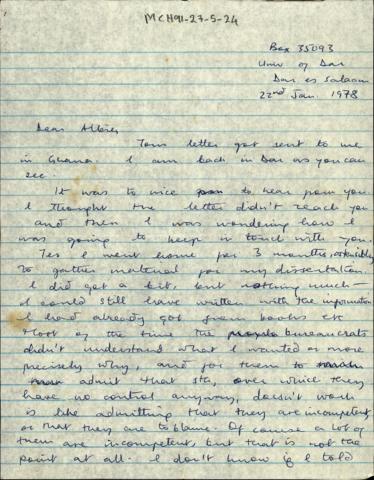 MCH91-27-5-24
Box 35093
Univ of Dar
Dar es Salaam
22nd Jan. 1978
Dear Albie,
Your letter got sent to me
in Ghana. I am back in Dar as you can
see.
It was so nice to hear from you.
I thought the letter didn't reach you
and then I was wondering how I
was going to keep in touch with you.
Yes I went home for 3 months, ostensibly
to gather material for my dissertation.
I did get a bit, but nothing much —
I could still have written with the information
I had already got from books etc
Most of the time the bureaucrats
didn't understand what I wanted or more
precisely why, and for them to
admit that sth, over which they
have no control anyway, doesn't work
is like admitting that they are incompetent
or that they are to blame. Of course a lot of
them are incompetent, but that is not the
point at all. I don't know if I told